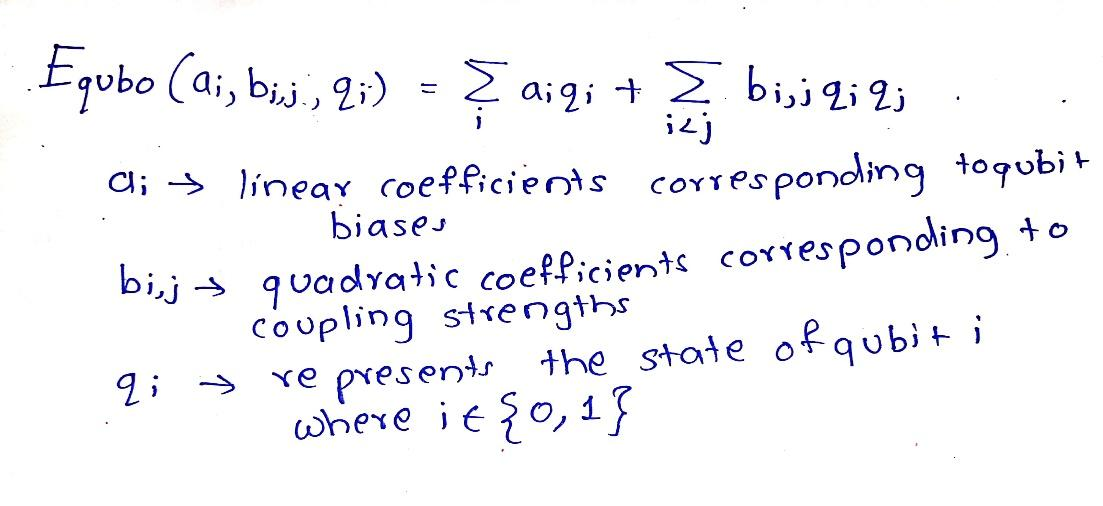 Equbo (ai, bi,j, qi) = ∑ aiqi + ∑ bi,j qi qj
i i<j
ai → linear coefficients corresponding to qubit
biases
bi,j → quadratic coefficients corresponding to
coupling strengths
qi → represents the state of qubit i
where i ∈ {0, 1}